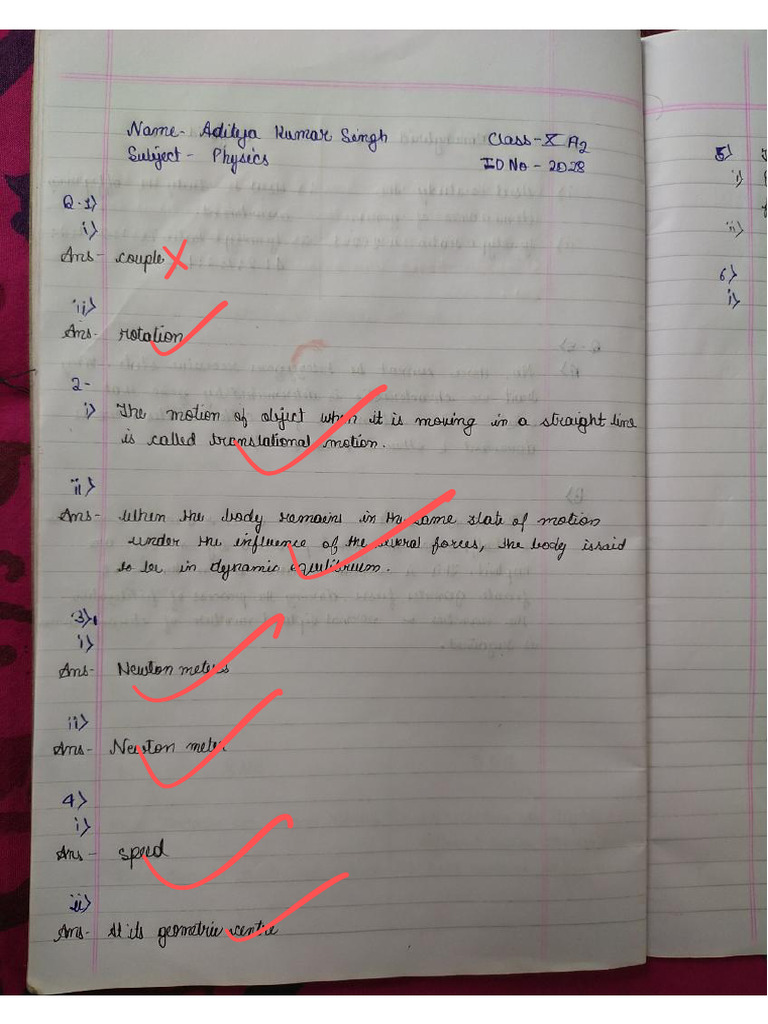 Name- Aditya Kumar Singh
Class-X A2
Subject - Physics
ID No - 2028
Q.1)
i)
Ans- couple
ii)
Ans- rotation
2-
i) The motion of object when it is moving in a straight line
is called translational motion.
ii)
Ans- When the body remains in the same state of motion
under the influence of the several forces, the body is said
to be in dynamic equilibrium.
3).
i)
Ans- Newton meters
ii)
Ans- Newton meter
4)
i)
Ans- speed
ii)
Ans- At its geometric centre
5)
i)
ii)
6)
i)